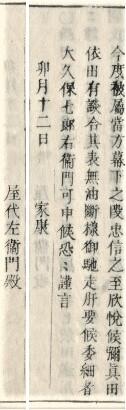 今度被属當方幕下之慶忠信之至欣悅候彌眞田
依由有談合其表無油斷樣御馳走肝要候委細者
大久保七郎右衞門可申候恐〻謹言
卯月十二日　家康
屋代左衞門殿